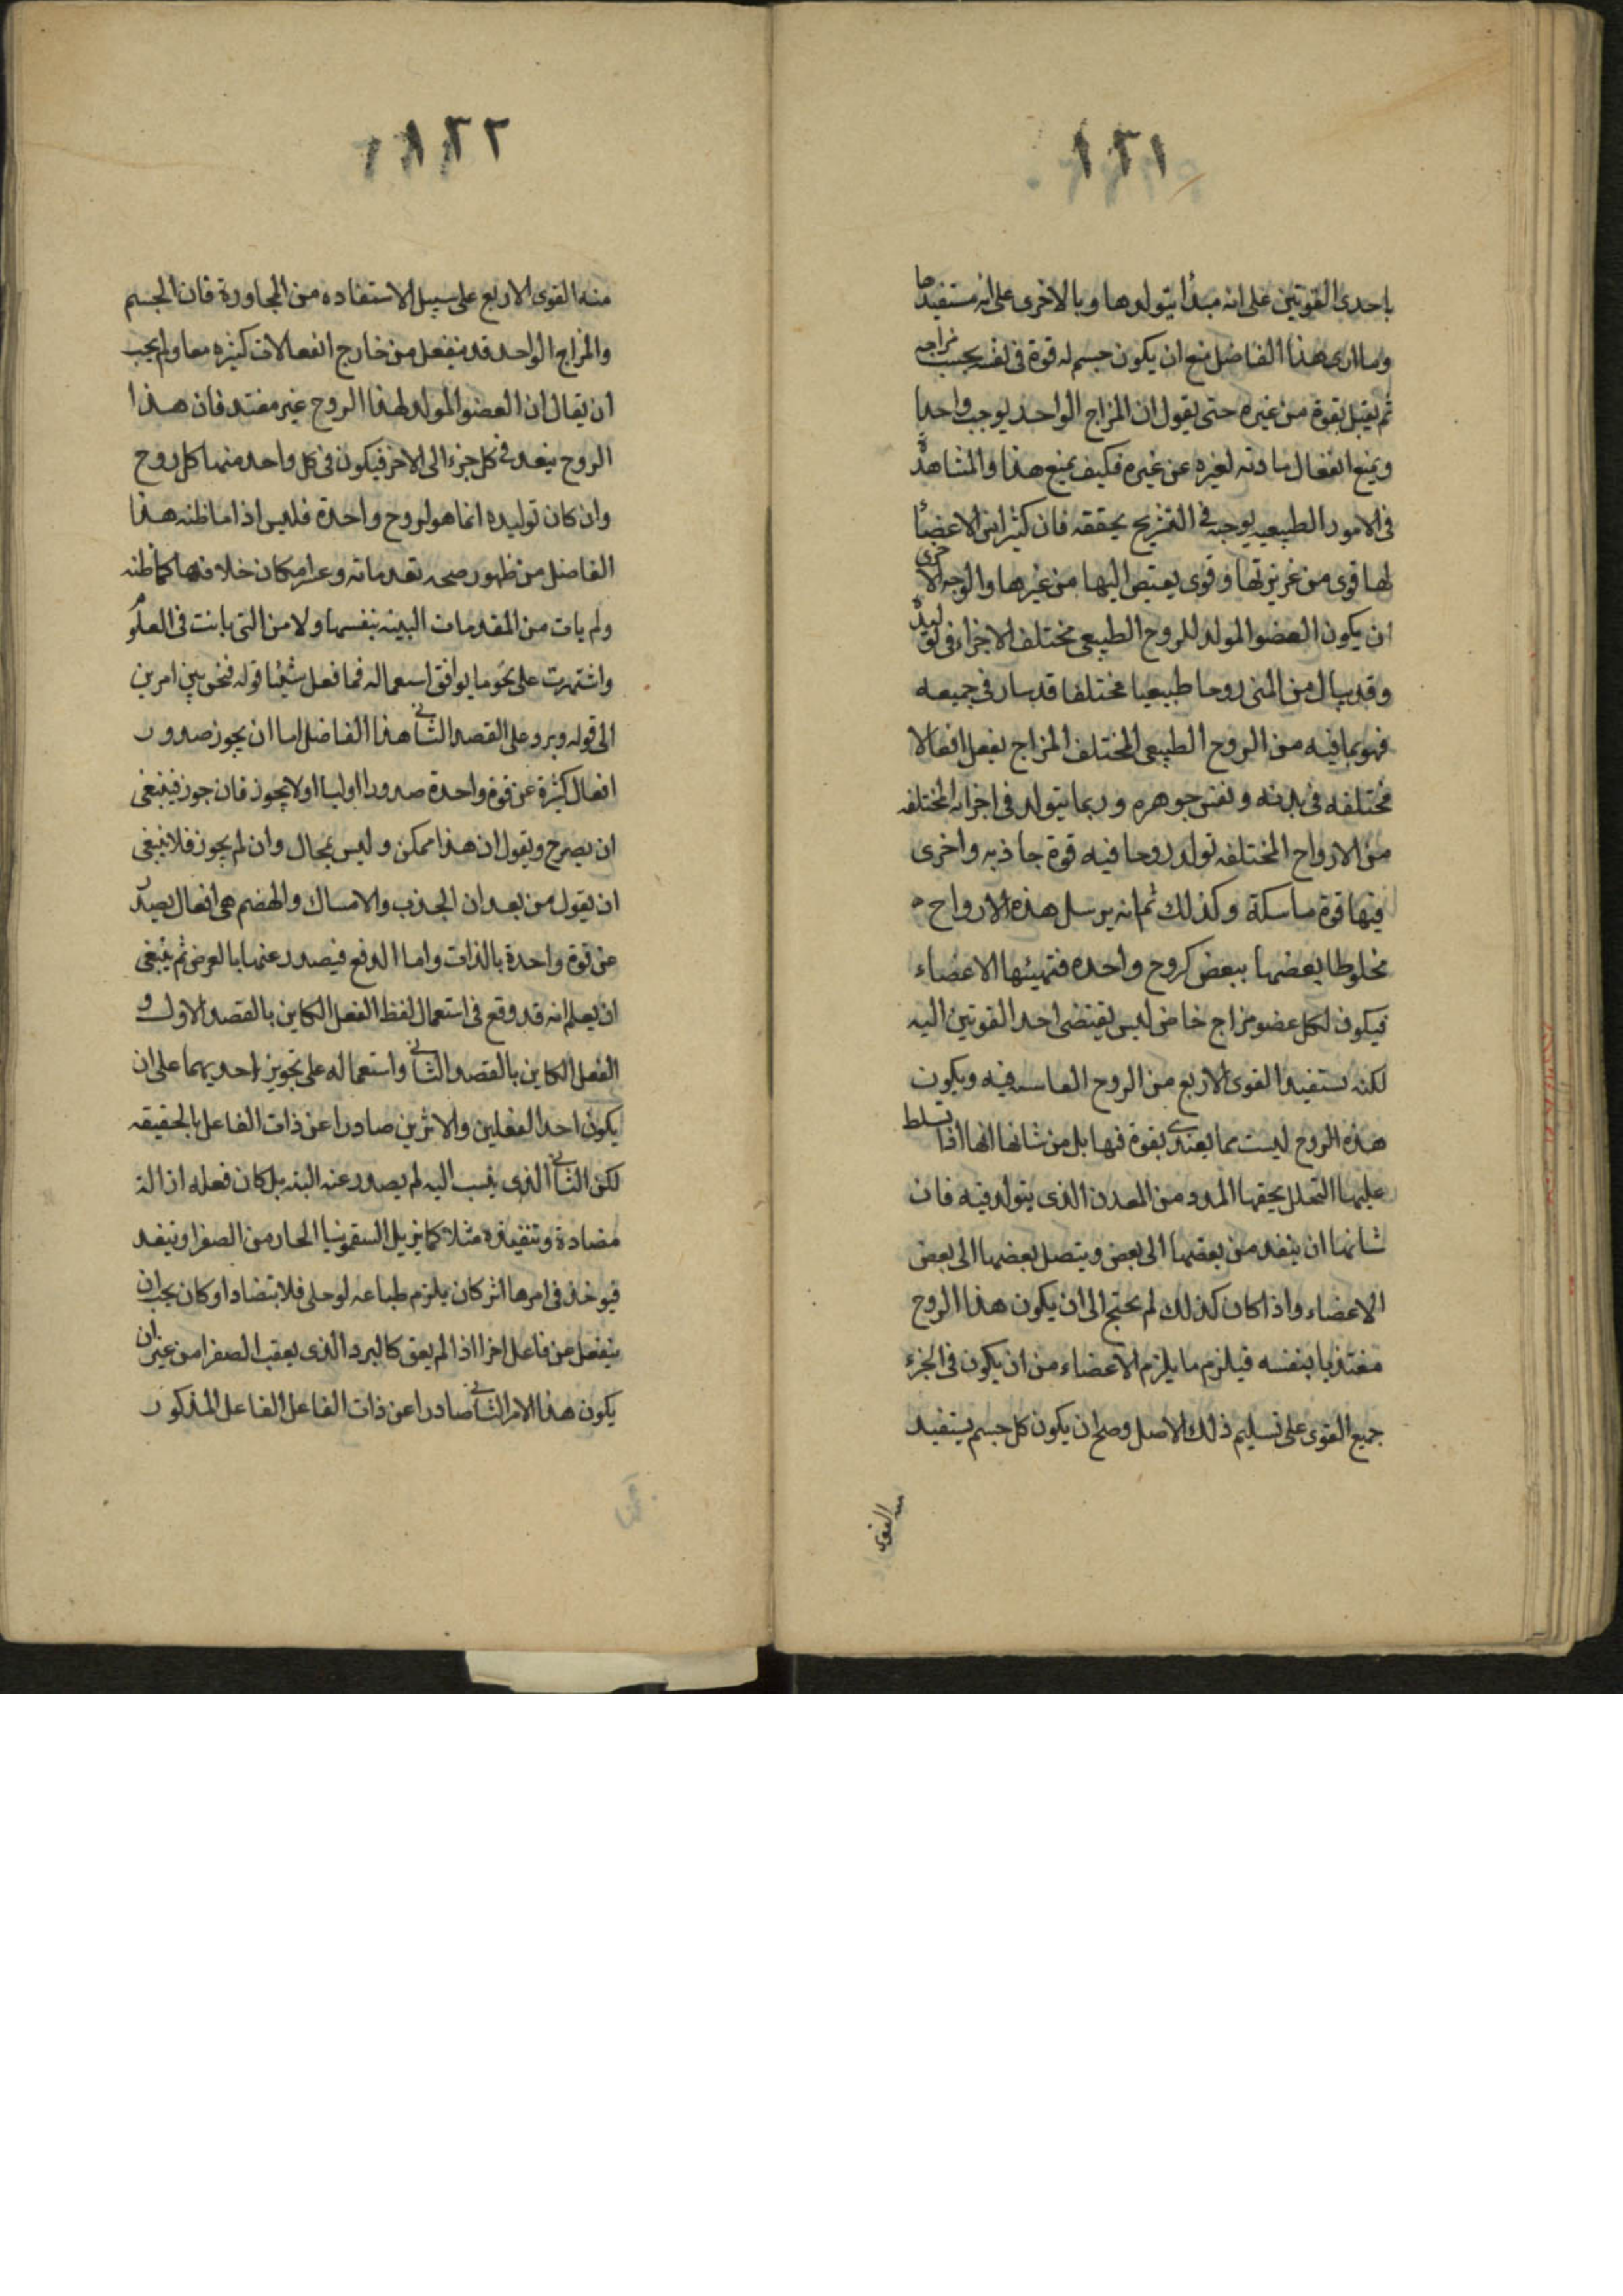 ١٢١
باحدى القوتين على انه مبدأ يتولدها وبالاخرى على انه مستفيدها
وما ارى هذا الفاضل منع ان يكون جسم له قوة فى نفسه بحسب مزاجه
ثم يقبل قوة من غيره حتى يقول ان المزاج الواحد يوجب واحدا
ويمنع انفعال مادته لغيره عن غيره فكيف يمنع هذا والمشاهدة
فى الامور الطبيعيه يوجبه فى التشريح يحققه فان كثيرا من الاعضا
لها قوى من غريزتها وقوى يفيض اليها من غيرها والوجه الاخرى
ان يكون العضو المولد للروح الطبيعى مختلف الاجزاء فى توليد
وقد ينال من المنى روحا طبيعيا مختلفا قد سار فى جميعه
فهو بما فيه من الروح الطبيعى المختلف المزاج يفعل افعالا
مختلفه فى بدنه ونفس جوهره وربما يتولد فى اجزائه المختلفه
من الارواح المختلفه تولد روحا فيه قوة جاذبه واخرى
فيها قوة ماسكة وكذلك ثم انه يرسل هذه الارواح
مخلوطا بعضها ببعض كروح واحده فتميئها الاعضاء
فيكون لكل عضو مزاج خاص ليس يقتضى احد القوتين اليه
لكنه يستفيد القوى الاربع من الروح الفاسه فيه ويكون
هذه الروح ليست مما يغتدى بقوة فيها بل من شانها انها اذا تسلط
عليها التحلل يحقها المدد من المعدن الذى يتولد فيه فان
شانها ان ينفد من بعضها الى بعض ويتصل بعضها الى بعض
الاعضاء واذا كان كذلك لم يحتج الى ان يكون هذا الروح
مغتذيا بنفسه فيلزم ما يلزم الاعضاء من ان يكون فى الجزء
جميع القوى على تسليم ذلك الاصل وصح ان يكون كل جسم يستفيد
منه القوى
١٢٢
منه القوى الاربع على سبيل الاستفاده من المجاورة فان الجسم
والمزاج الواحد قد ينفعل من خارج انفعالات كثيره معا ولم يجب
ان يقال ان العضو المولد لهذا الروح غير مغتد فان هذا
الروح ينفد فى كل جزء الى الاخر فيكون فى كل واحد منهما كل روح
وان كان توليده انما هو لروح واحدة فليس اذا ما ظنه هذا
الفاضل من ظهور صحه تقدماته وعدم امكان خلافها كما ظنه
ولم يات من المقدمات البينه بنفسها ولا من التى بانت فى العلوم
واشتهرت على نحو ما يوافق استعماله فما فعل شيئا قوله فنحن بين امرين
الى قوله ويرد على القصد الثانى هذا الفاضل اما ان يجوز صدور
افعال كثيرة عن قوة واحدة صدورا اوليا اولا يجوز فان جوز فينبغى
ان يصرح ويقول ان هذا ممكن وليس بمحال وان لم يجوز فلا ينبغى
ان يقول من بعد ان الجذب والامساك والهضم هى افعال يصدر
عن قوة واحدة بالذات واما الدفع فيصدر عنها بالعرض ثم ينبغى
ان يعلم انه قد وقع فى استعمال لفظ الفعل الكاين بالقصد الاول و
الفعل الكاين بالقصد الثانى واستعماله على تجويز احديهما على ان
يكون احد الفعلين والاثرين صادرا عن ذات الفاعل بالحقيقه
لكن الثانى الذى ينسب اليه لم يصدر عنه البته بل كان فعله ازالة
مضادة وتنفيذه مثلا كما يزيل السقمونيا الحار من الصفرا وتنفد
فيوخذ فى امرها اثر كان يلزم طباعه لو خلى فلا بتضاد او كان يجب ان
ينفعل من فاعل اخر اذا لم يعق كالبرد الذى يعقب الصفرا من غير ان
يكون هذا الامر الثانى صادرا عن ذات الفاعل الفاعل المذكور